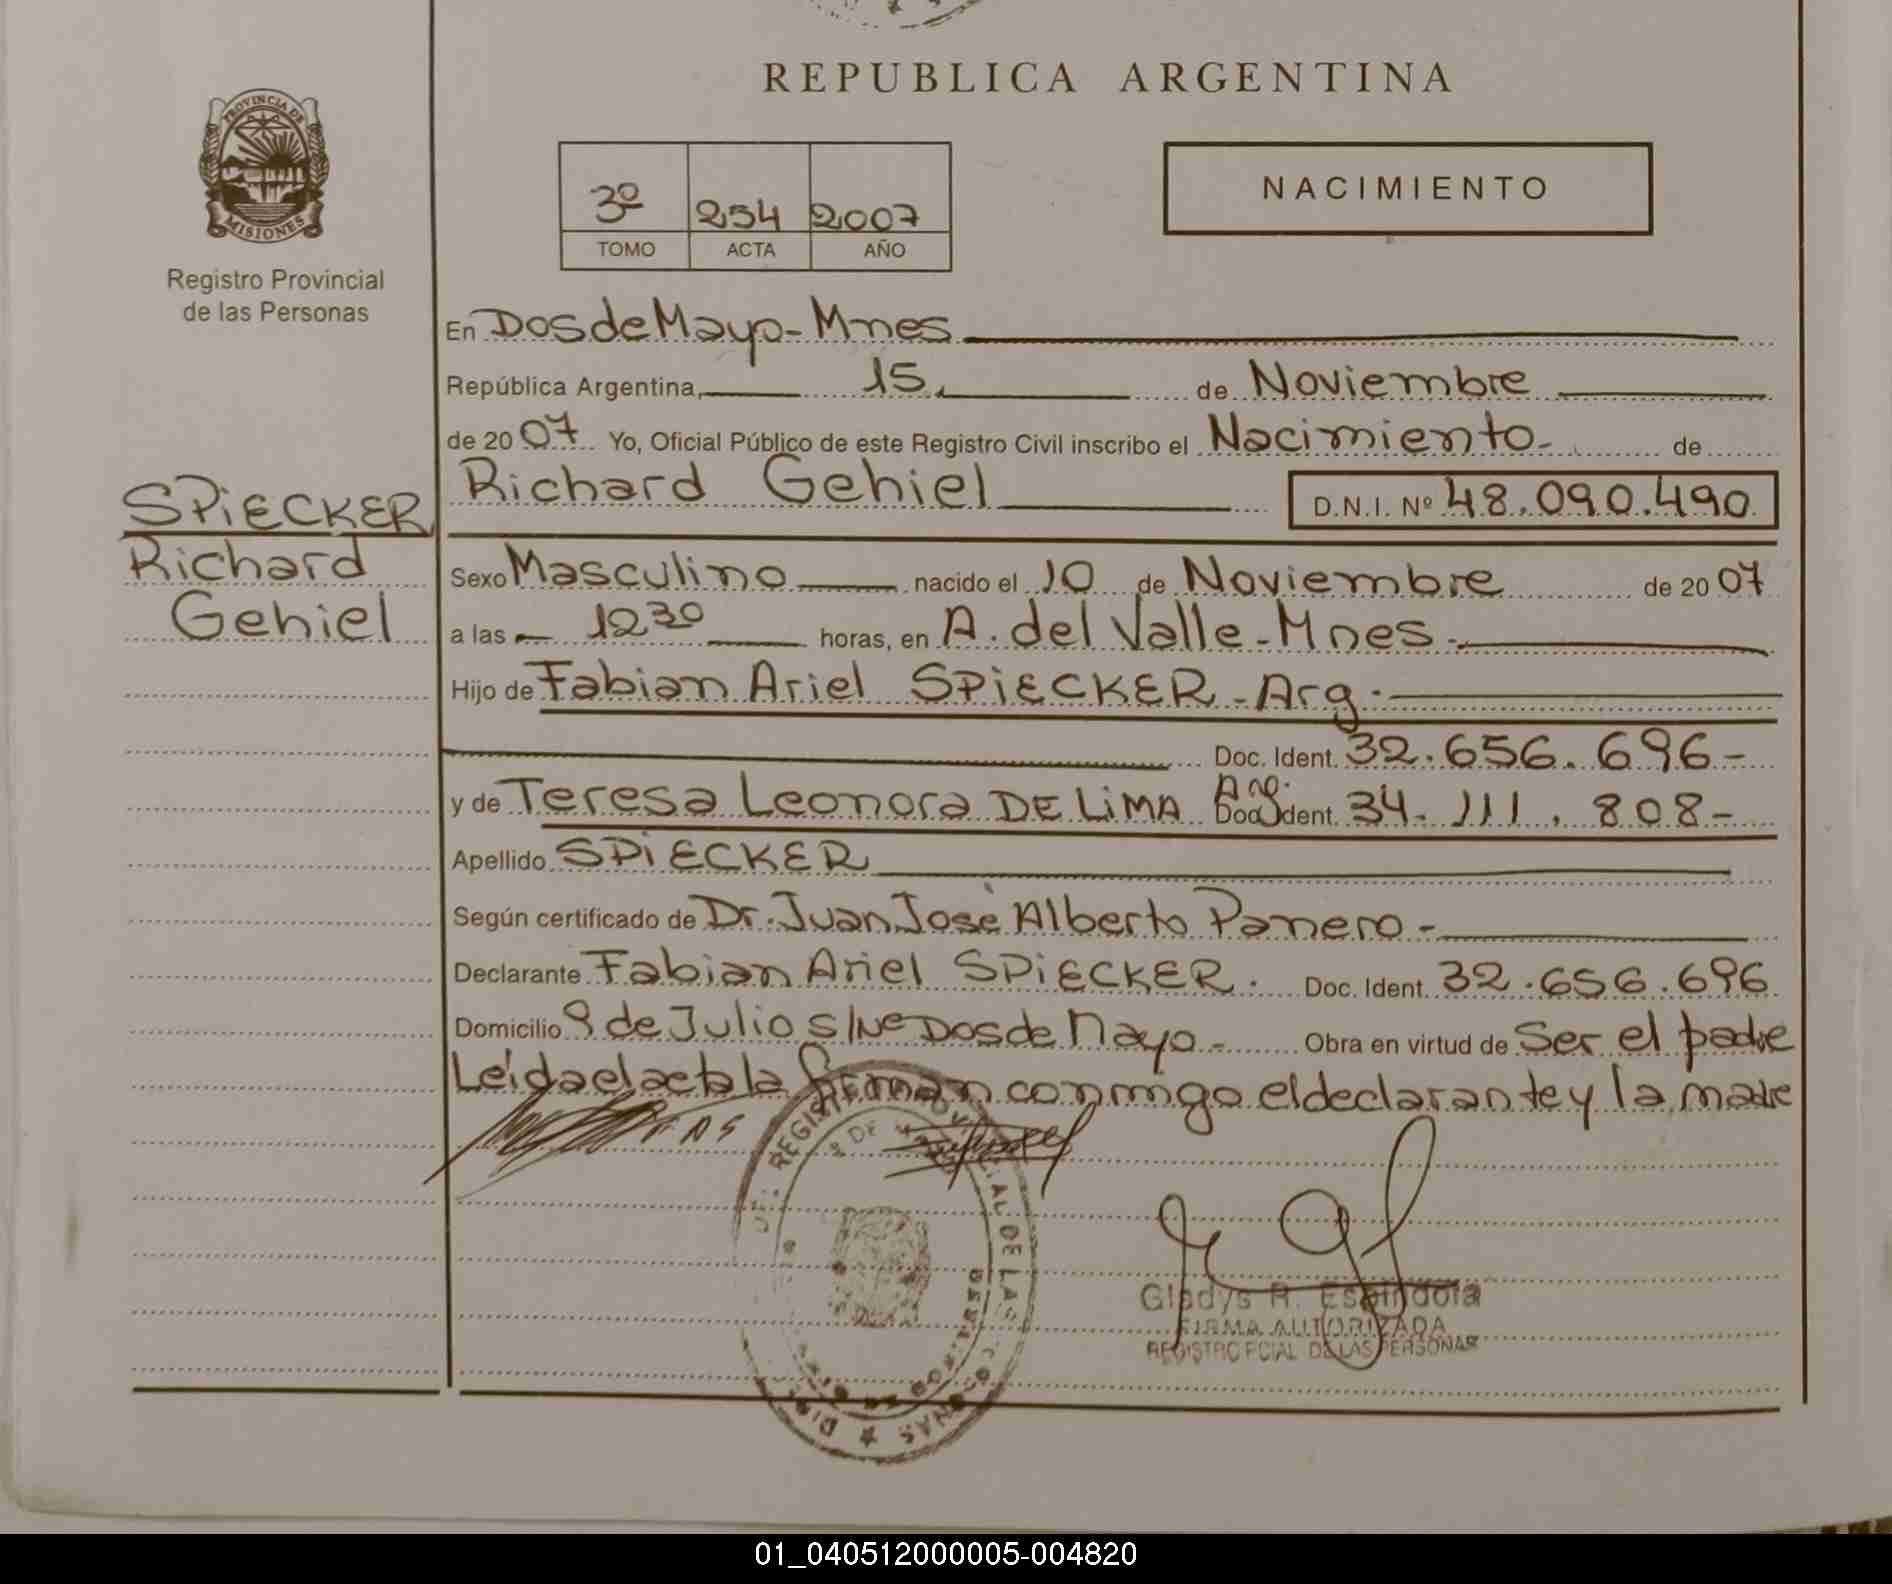 REPUBLICA ARGENTINA
PROVINCIA DE
MISIONES
Registro Provincial
de las Personas
3º 254 2007
TOMO ACTA AÑO
NACIMIENTO
En Dos de Mayo - Mnes
República Argentina, 15 de Noviembre
de 2007 Yo, Oficial Público de este Registro Civil inscribo el Nacimiento - de
Richard Gehiel D.N.I. Nº 48.090.490
SPiECKER
Richard
Gehiel
Sexo Masculino nacido el 10 de Noviembre de 2007
a las 12 30 horas, en A. del Valle - Mnes -
Hijo de Fabian Ariel SPiECKER - Arg.
Doc. Ident. 32.656.696-
y de Teresa Leonora DE LiMA Arg. Doc. Ident. 34.111.808-
Apellido SPiECKER
Según certificado de Dr. Juan José Alberto Panero -
Declarante Fabian Ariel SPiECKER. Doc. Ident. 32.656.696
Domicilio 9 de Julio S/Nº Dos de Mayo - Obra en virtud de Ser el padre
Leída el acta la firman conmigo el declarante y la madre
Gladys R. Espindola
FIRMA AUTORIZADA
REGISTRO PCIAL DE LAS PERSONAS
01_040512000005-004820